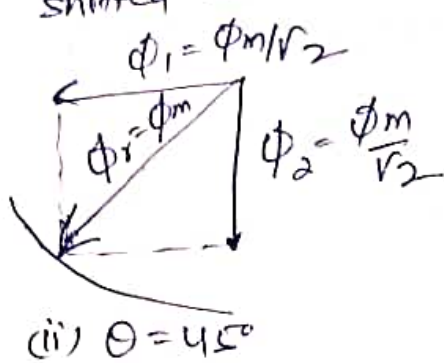 ϕ₁ = ϕm/√2
ϕr = ϕm
ϕ₂ = ϕm/√2
(ii) θ = 45°